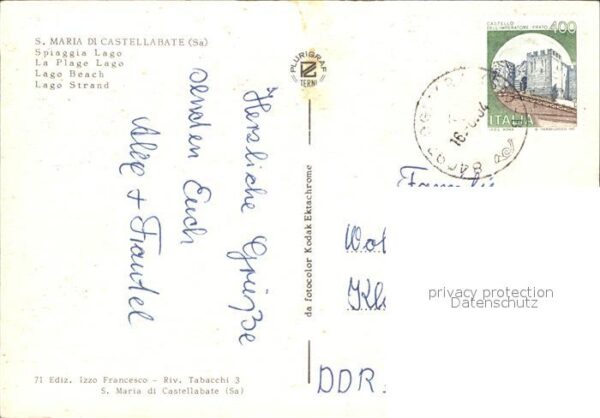 S. MARIA DI CASTELLABATE (Sa)
Spiaggia Lago
La Plage Lago
Lago Beach
Lago Strand
Herzliche Grüße
senden Euch
PLURIGRAF
TERNI
da fotocolor Kodak Ektachrome
CASTELLO
DELL'IMPERATORE - PRATO
400
ITALIA
Familie
DDR.
privacy protection
Datenschutz
71 Ediz. Izzo Francesco - Riv. Tabacchi 3
S. Maria di Castellabate (Sa)